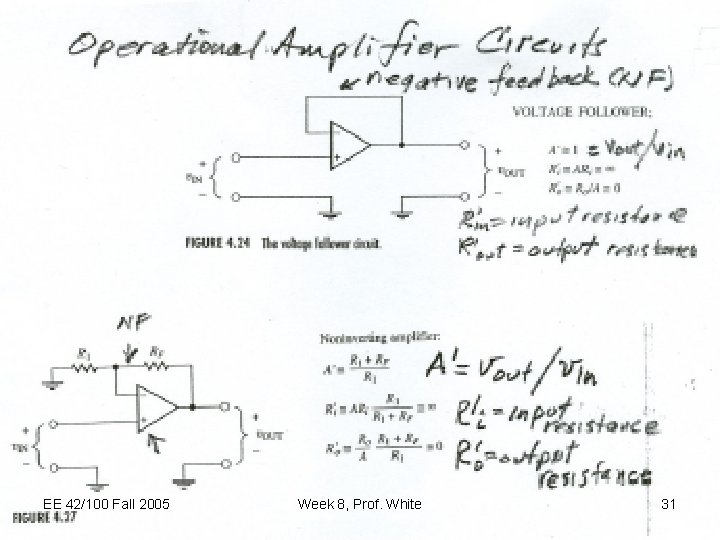 Operational Amplifier Circuits
negative feedback (NF)
VOLTAGE FOLLOWER:
A' ≅ 1 = Vout/Vin
R'i ≅ ARi ≅ ∞
R'o ≅ Ro/A ≅ 0
+
υIN
−
−
+
+
υOUT
−
R'in = input resistance
R'out = output resistance
FIGURE 4.24 The voltage follower circuit.
NF
R1
RF
−
+
+
υIN
−
+
υOUT
−
Noninverting amplifier:
A' ≅ R1 + RF / R1
A' = Vout/Vin
R'i ≅ ARi R1 / R1 + RF ≅ ∞
R'i = input
resistance
R'o ≅ Ro / A R1 + RF / R1 ≅ 0
R'o = output
resistance
EE 42/100 Fall 2005
Week 8, Prof. White
31
FIGURE 4.27